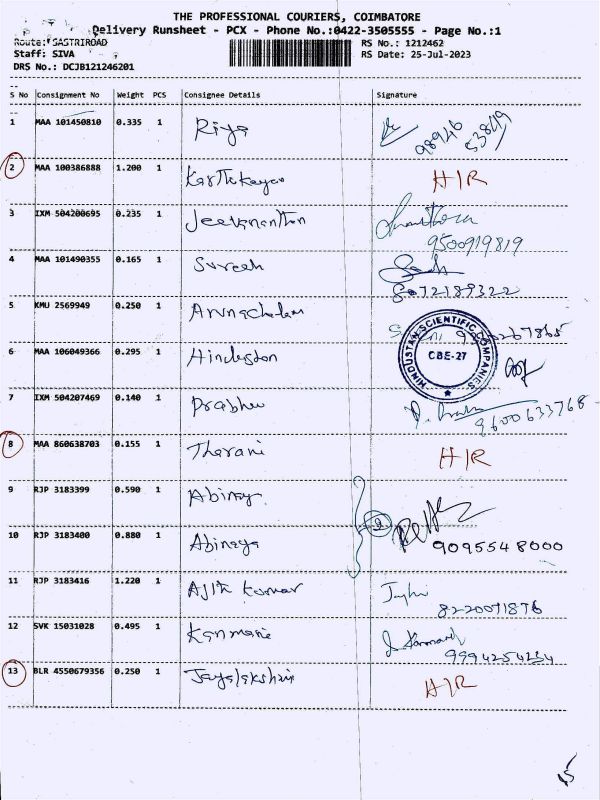 THE PROFESSIONAL COURIERS, COIMBATORE
Delivery Runsheet - PCX - Phone No.:0422-3505555 - Page No.:1
Route: SASTRIROAD RS No.: 1212462
Staff: SIVA RS Date: 25-Jul-2023
DRS No.: DCJB121246201
S No Consignment No Weight PCS Consignee Details Signature
1 MAA 101450810 0.335 1 Riya 98946 53849
2 MAA 100386888 1.200 1 H/R
3 IXM 504200695 0.235 1 Jeevananthan
9500919819
4 MAA 101490355 0.165 1 Suresh
8072189322
5 KMU 2569949 0.250 1 Arunachalam
HINDUSTAN SCIENTIFIC COMPANIES
CBE-27
6 MAA 106049366 0.295 1 Hindustan
7 IXM 504207469 0.140 1 Prabhu
9600633768
8 MAA 860638703 0.155 1 Tharani H/R
9 RJP 3183399 0.590 1 Abinay
2
10 RJP 3183400 0.880 1 Abinaya 9095548000
11 RJP 3183416 1.220 1 Ajith Kumar
8220071876
12 SVK 15031028 0.495 1 Kanmani
9994254234
13 BLR 4550679356 0.250 1 H/R
15